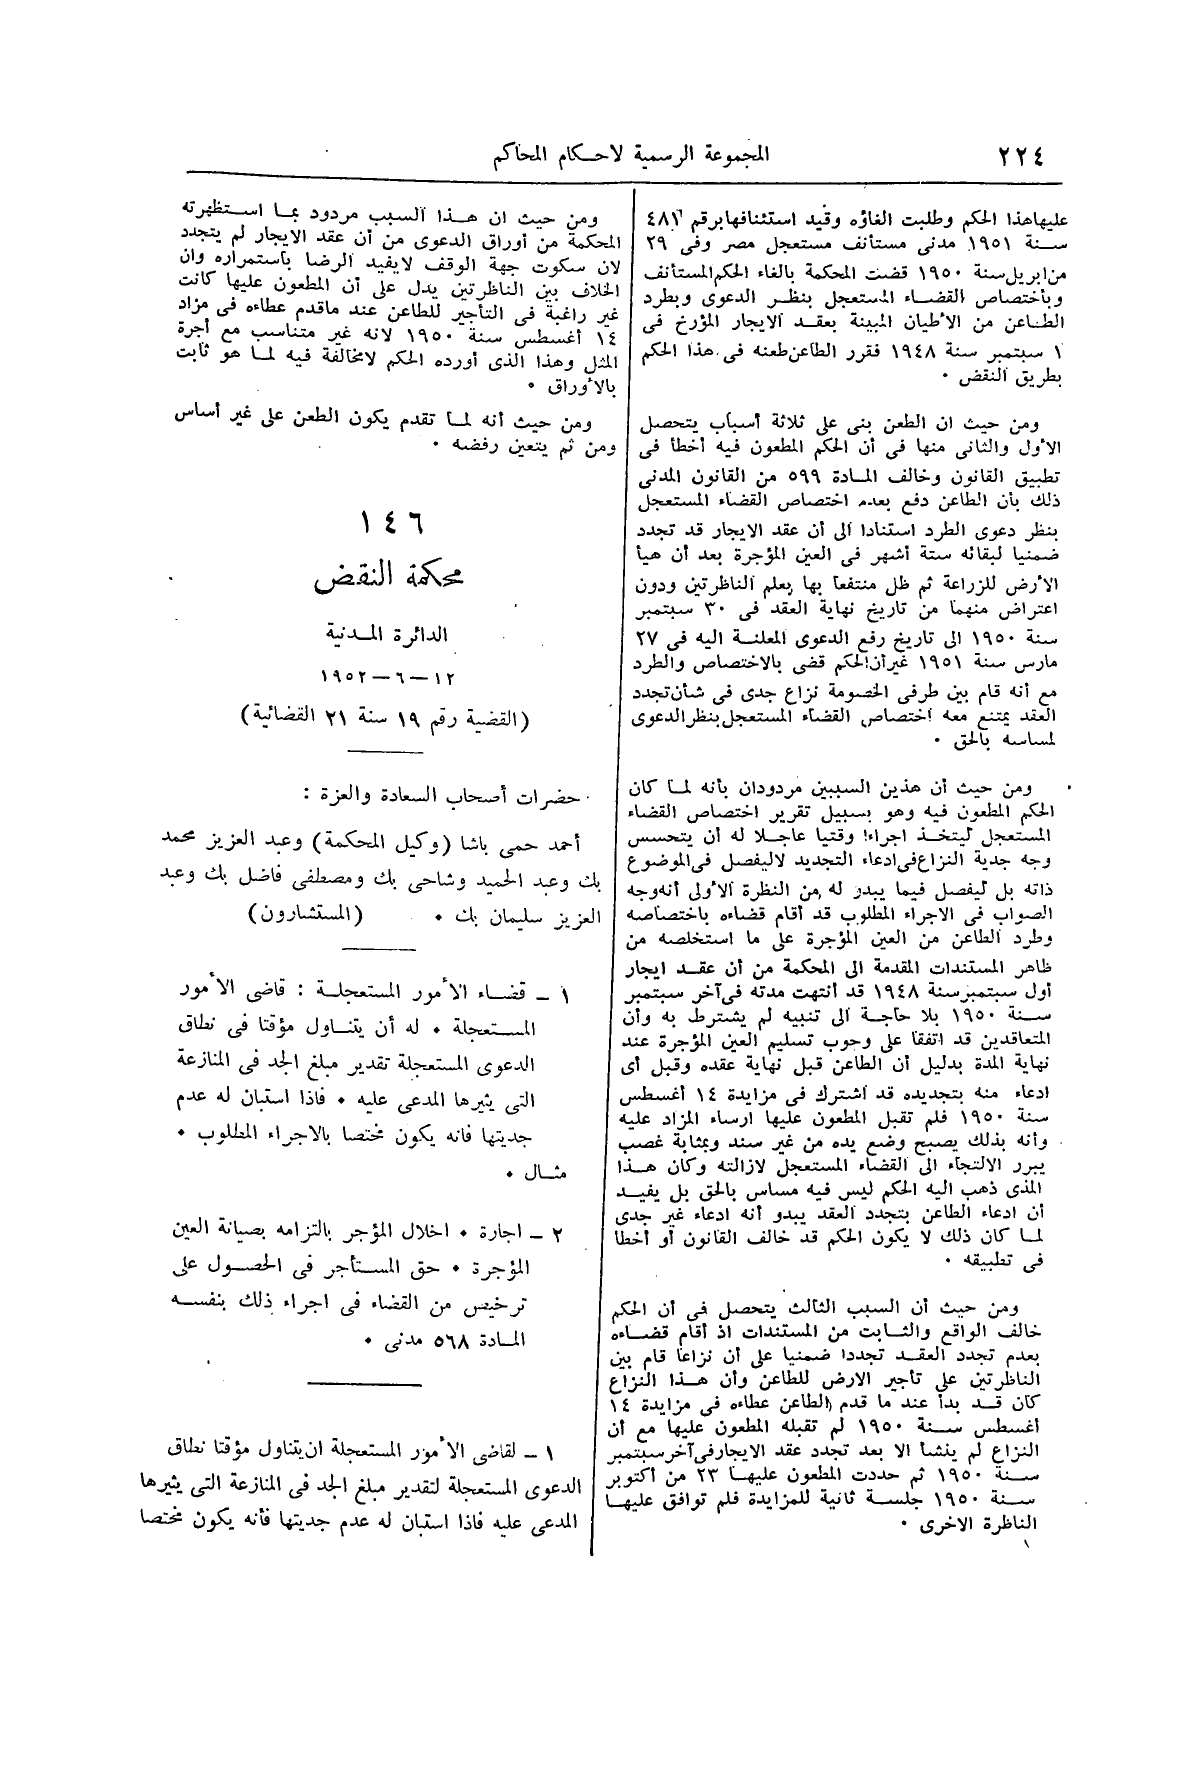 ٢٢٤
المجموعة الرسمية لاحكام المحاكم
عليهاهذا الحكم وطلبت الغاؤه وقيد استئنافهابرقم ٤٨١
سنة ١٩٥١ مدنى مستأنف مستعجل مصر وفى ٢٩
من ابريل سنة ١٩٥٠ قضت المحكمة بالغاء الحكم المستأنف
وبأختصاص القضاء المستعجل بنظر الدعوى وبطرد
الطاعن من الأطيان المبينة بعقد الايجار المؤرخ فى
١ سبتمبر سنة ١٩٤٨ فقرر الطاعن طعنه فى هذا الحكم
بطريق النقض ٠
ومن حيث ان الطعن بنى على ثلاثة أسباب يتحصل
الأول والثانى منها فى أن الحكم المطعون فيه أخطأ فى
تطبيق القانون وخالف المادة ٥٩٩ من القانون المدنى
ذلك بأن الطاعن دفع بعدم اختصاص القضاء المستعجل
بنظر دعوى الطرد استنادا الى أن عقد الايجار قد تجدد
ضمنيا لبقائه ستة أشهر فى العين المؤجرة بعد أن هيأ
الأرض للزراعة ثم ظل منتفعا بها بعلم الناظرتين ودون
اعتراض منهما من تاريخ نهاية العقد فى ٣٠ سبتمبر
سنة ١٩٥٠ الى تاريخ رفع الدعوى المعلنة اليه فى ٢٧
مارس سنة ١٩٥١ غيرأن الحكم قضى بالاختصاص والطرد
مع أنه قام بين طرفى الخصومة نزاع جدى فى شأن تجدد
العقد يمتنع معه اختصاص القضاء المستعجل بنظر الدعوى
لمساسه بالحق ٠
ومن حيث أن هذين السببين مردودان بأنه لما كان
الحكم المطعون فيه وهو بسبيل تقرير اختصاص القضاء
المستعجل ليتخذ اجراءا وقتيا عاجلا له أن يتحسس
وجه جدية النزاع فى ادعاء التجديد لا ليفصل فى الموضوع
ذاته بل ليفصل فيما يبدر له من النظرة الأولى أنه وجه
الصواب فى الاجراء المطلوب قد أقام قضاءه باختصاصه
وطرد الطاعن من العين المؤجرة على ما استخلصه من
ظاهر المستندات المقدمة الى المحكمة من أن عقد ايجار
أول سبتمبر سنة ١٩٤٨ قد أنتهت مدته فى آخر سبتمبر
سنة ١٩٥٠ بلا حاجة الى تنبيه لم يشترط به وأن
المتعاقدين قد اتفقا على وجوب تسليم العين المؤجرة عند
نهاية المدة بدليل أن الطاعن قبل نهاية عقده وقبل أى
ادعاء منه بتجديده قد أشترك فى مزايدة ١٤ أغسطس
سنة ١٩٥٠ فلم تقبل المطعون عليها ارساء المزاد عليه
وأنه بذلك يصبح وضع يده من غير سند وبمثابة غصب
يبرر الالتجاء الى القضاء المستعجل لازالته وكان هذا
المذى ذهب اليه الحكم ليس فيه مساس بالحق بل يفيد
أن ادعاء الطاعن بتجدد العقد يبدو أنه ادعاء غير جدى
لما كان ذلك لا يكون الحكم قد خالف القانون أو أخطا
فى تطبيقه ٠
ومن حيث أن السبب الثالث يتحصل فى أن الحكم
خالف الواقع والثابت من المستندات اذ أقام قضاءه
بعدم تجدد العقد تجددا ضمنيا على أن نزاعا قام بين
الناظرتين على تأجير الارض للطاعن وأن هذا النزاع
كان قد بدأ عند ما قدم الطاعن عطاءه فى مزايدة ١٤
أغسطس سنة ١٩٥٠ لم تقبله المطعون عليها مع أن
النزاع لم ينشأ الا بعد تجدد عقد الايجار فى آخر سبتمبر
سنة ١٩٥٠ ثم حددت المطعون عليها ٢٣ من أكتوبر
سنة ١٩٥٠ جلسة ثانية للمزايدة فلم توافق عليها
الناظرة الاخرى ٠
ومن حيث ان هذا السبب مردود بما استظهرته
المحكمة من أوراق الدعوى من أن عقد الايجار لم يتجدد
لان سكوت جهة الوقف لايفيد الرضا بأستمراره وان
الخلاف بين الناظرتين يدل على أن المطعون عليها كانت
غير راغبة فى التأجير للطاعن عند ماقدم عطاءه فى مزاد
١٤ أغسطس سنة ١٩٥٠ لانه غير متناسب مع أجرة
المثل وهذا الذى أورده الحكم لامخالفة فيه لما هو ثابت
بالأوراق ٠
ومن حيث أنه لما تقدم يكون الطعن على غير أساس
ومن ثم يتعين رفضه ٠
١٤٦
محكمة النقض
الدائرة المدنية
١٢ – ٦ – ١٩٥٢
(القضية رقم ١٩ سنة ٢١ القضائية)
حضرات أصحاب السعادة والعزة :
أحمد حمى باشا (وكيل المحكمة) وعبد العزيز محمد
بك وعبد الحميد وشاحى بك ومصطفى فاضل بك وعبد
العزيز سليمان بك ٠ (المستشارون)
١ – قضاء الأمور المستعجلة : قاضى الأمور
المستعجلة ٠ له أن يتناول مؤقتا فى نطاق
الدعوى المستعجلة تقدير مبلغ الجد فى المنازعة
التى يثيرها المدعى عليه ٠ فاذا استبان له عدم
جديتها فانه يكون مختصا بالاجراء المطلوب ٠
مثال ٠
٢ – اجارة ٠ اخلال المؤجر بالتزامه بصيانة العين
المؤجرة ٠ حق المستأجر فى الحصول على
ترخيص من القضاء فى اجراء ذلك بنفسه
المادة ٥٦٨ مدنى ٠
١ – لقاضى الأمور المستعجلة ان يتناول مؤقتا نطاق
الدعوى المستعجلة لتقدير مبلغ الجد فى المنازعة التى يثيرها
المدعى عليه فاذا استبان له عدم جديتها فأنه يكون مختصا